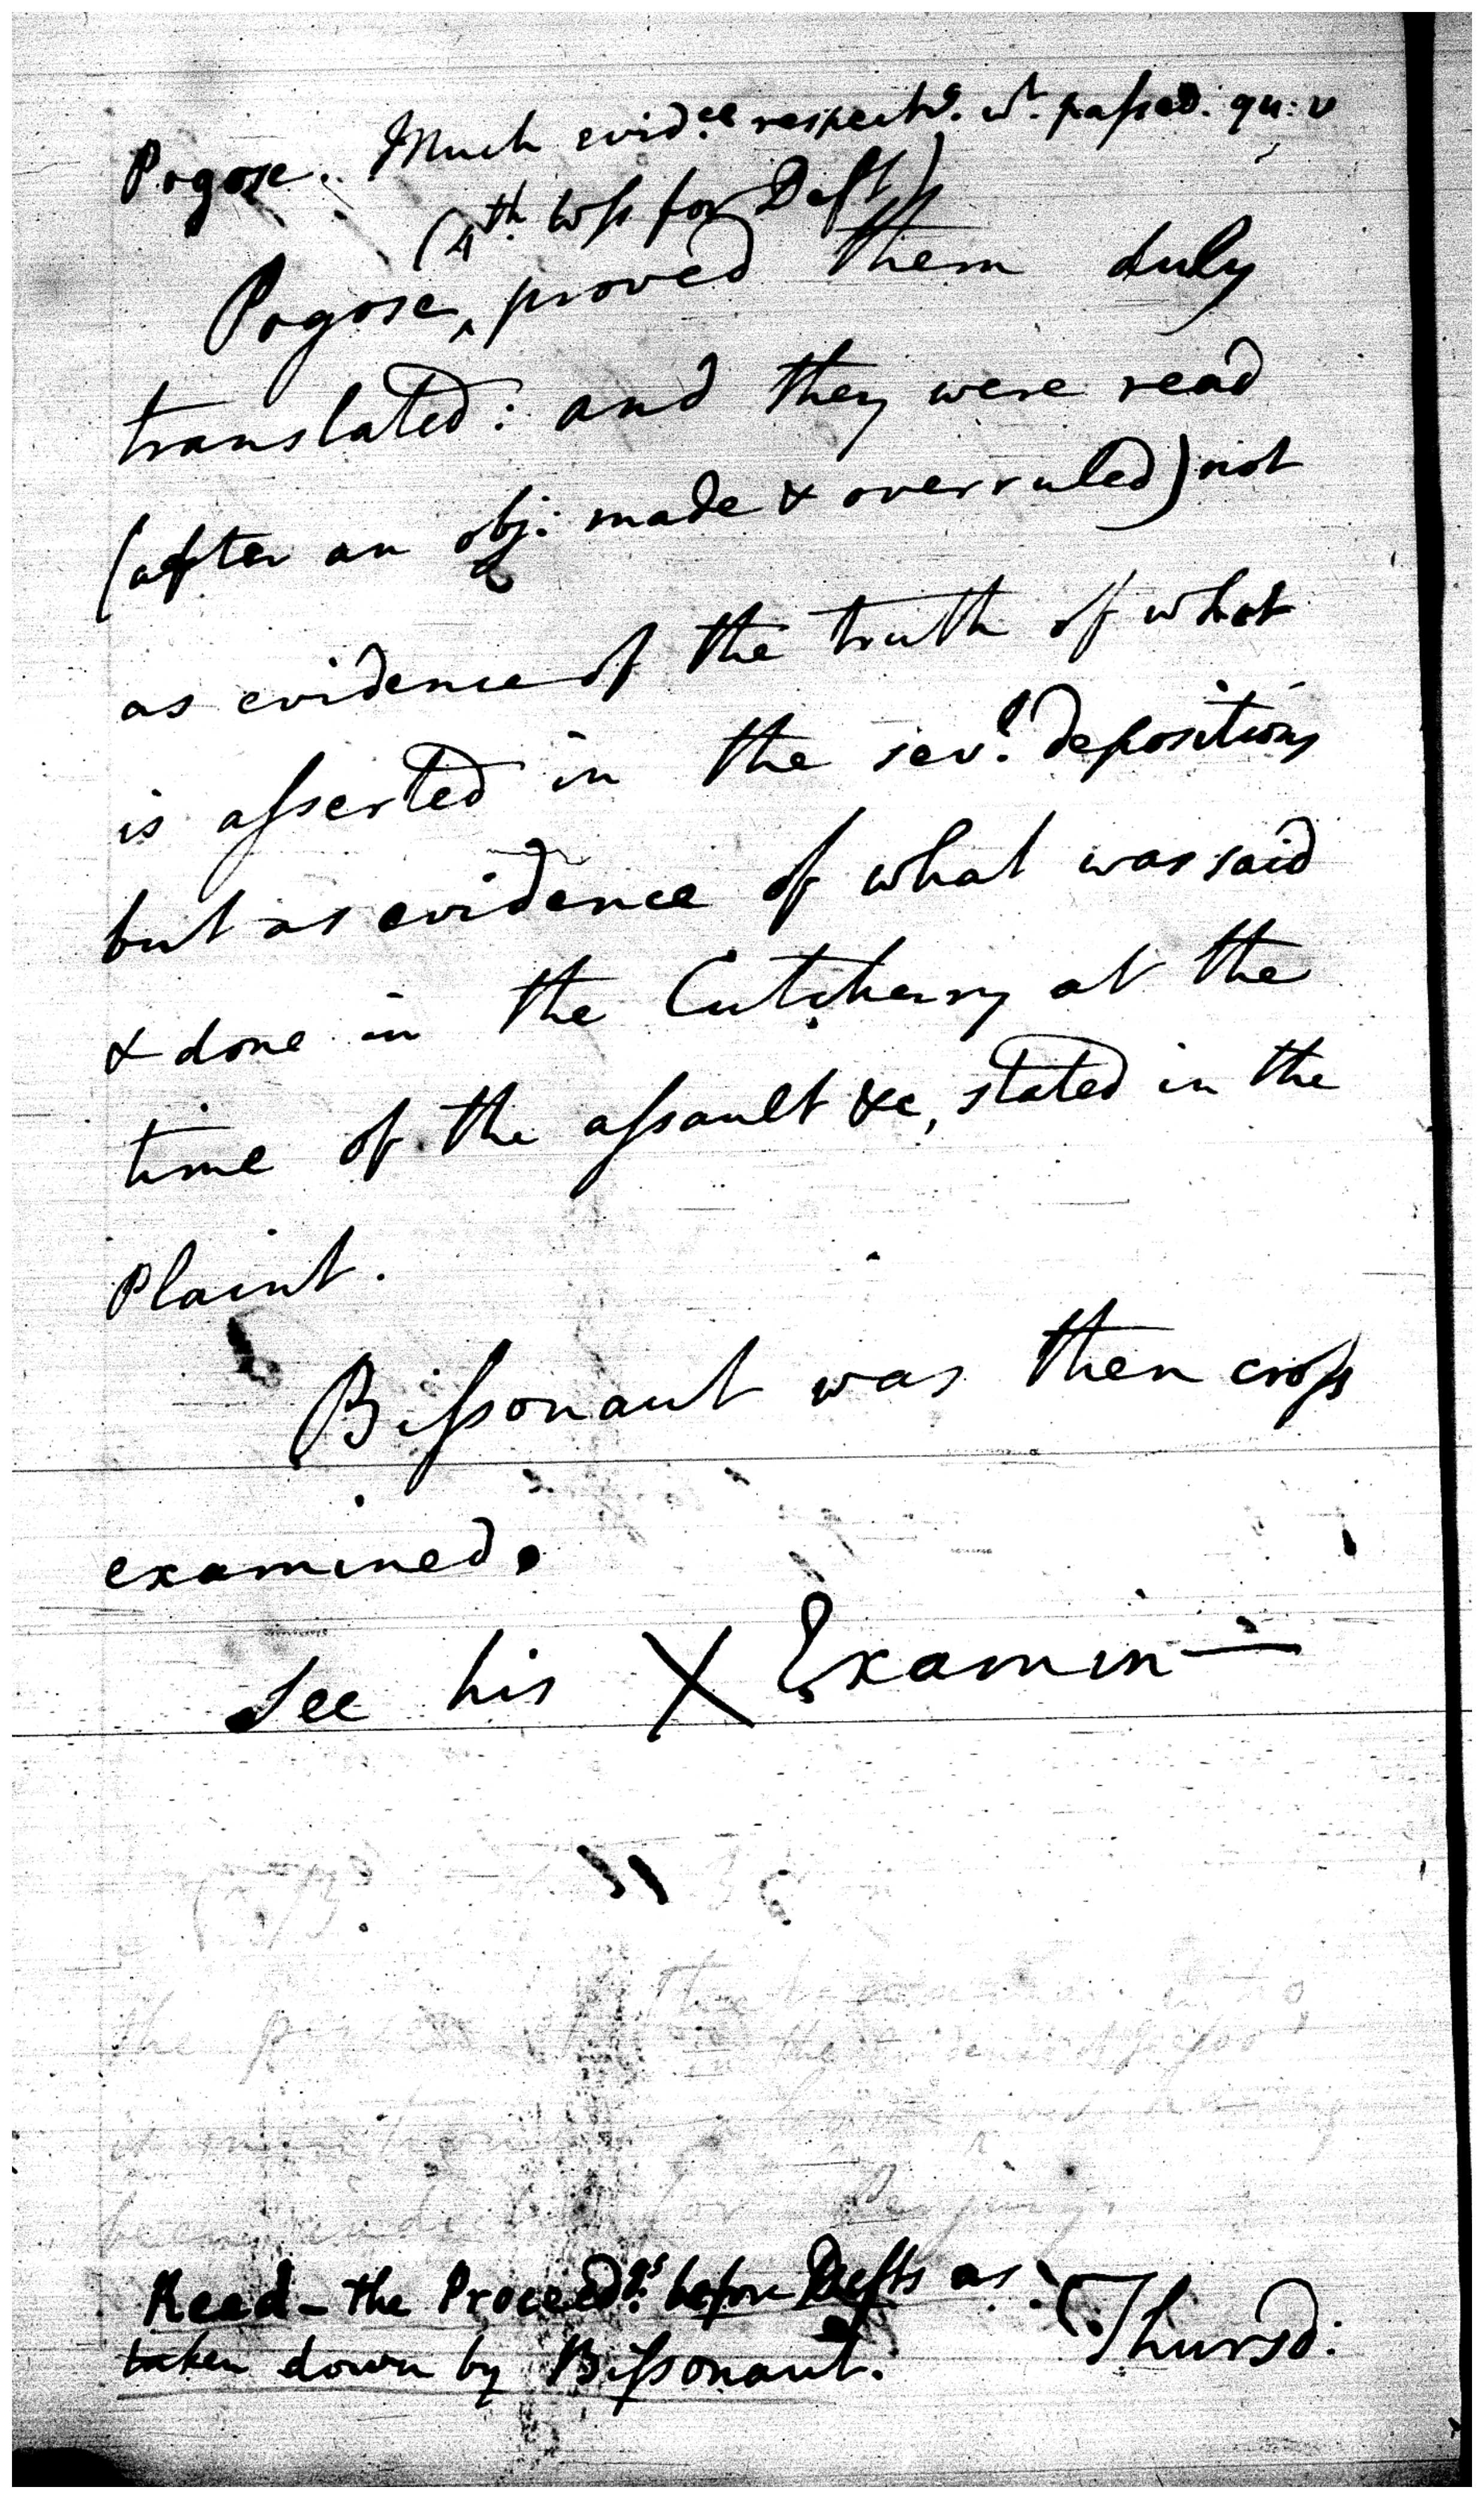 Pogose. Much evid.ce respectg. wt. passed. qu: v
(4th. Wss for Deft)
Pogose, ‸ proved them duly
translated: and they were read
(after an obj: made & overruled) not
as evidence of the truth of what
is asserted in the sev.l depositions
but as evidence of what was said
& done in the Cutcherry at the
time of the assault &c, stated in the
Plaint.
Bissonaut was then cross
examined.
See his X Examin—
Read - the Proceedgs. before Defts as
taken down by Bissonaut.
Thursd: